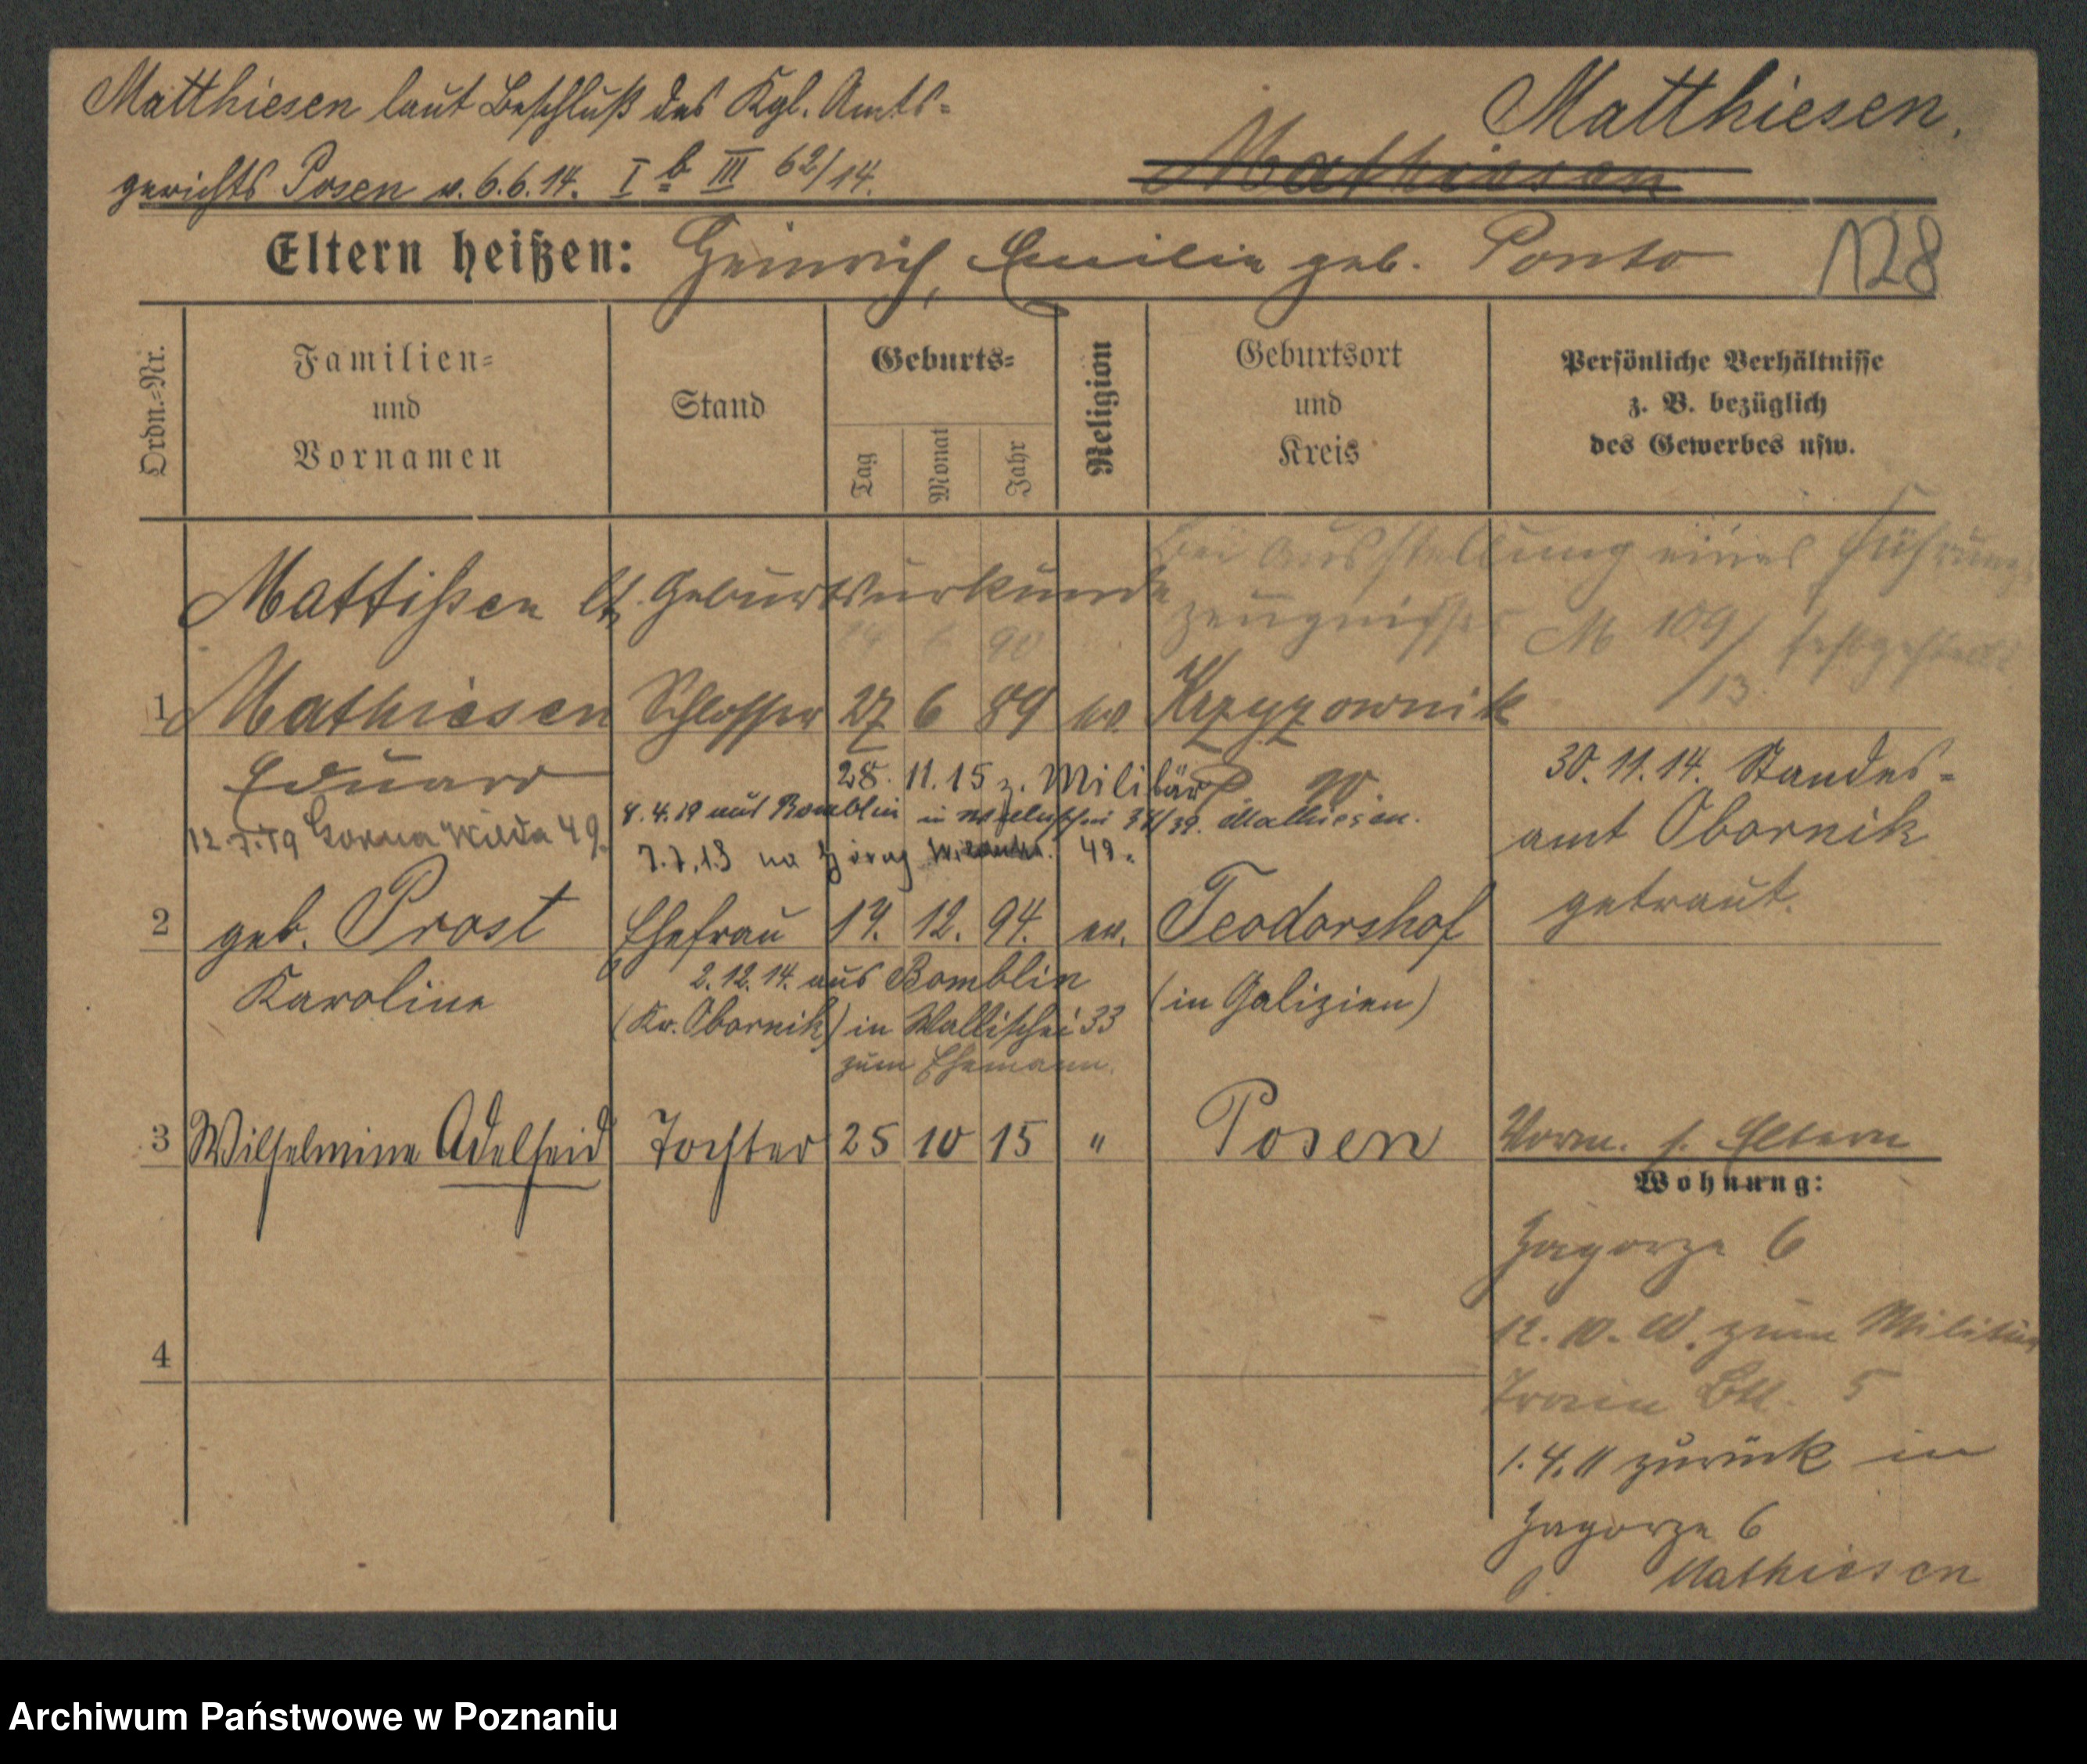 Matthiesen laut Beschluß des Kgl. Amts-
gerichts Posen v. 6.6.14. I b III 62/14.
Matthiesen.
Mathiesen
Eltern heißen: Heinrich, Emilie geb. Ponto
128
Ordn.-Nr.
Familien-
und
Vornamen
Stand
Geburts-
Tag
Monat
Jahr
Religion
Geburtsort
und
Kreis
Persönliche Verhältnisse
z. B. bezüglich
des Gewerbes usw.
Mattißen lt. Geburtsurkunde
bei Ausstellung eines Führungs-
zeugnisses M 109/13 festgestellt
1 Mathiesen Schlosser 27 6 89 ev. Krzyzownik
Eduard
28. 11. 15 z. Militär
P. W.
30. 11. 14. Standes-
amt Obornik
getraut.
8. 4. 19 aus Bomblin in Wallischei Mathiesen.
12.7.19 Gorna Wilda 49.
7.7.19 na 49.
2 geb. Prost Ehefrau 14. 12. 94. ev. Teodorshof
Karoline
(in Galizien)
2. 12. 14. aus Bomblin
(Kr. Obornik) in Wallischei 33
zum Ehemann.
3 Wilhelmine Adelheid Tochter 25 10 15 " Posen
Vorm. s. Eltern
Wohnung:
Zagorze 6
12. 10. 10. zum Militär
Train Btl. 5
1. 4. 11 zurück in
Zagorze 6
Mathiesen
4
Archiwum Państwowe w Poznaniu